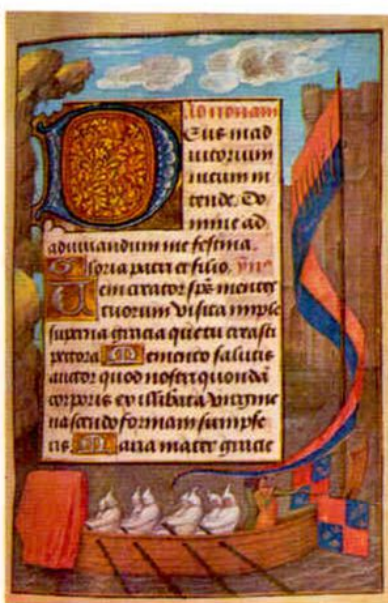 Ad nonam
Deus in ad
iutorium
meum in
tende. Do
mine ad
adiuuandum me festina.
Gloria patri et filio. ymꝰ
Ueni creator sp̄s mentes
tuorum visita imple
superna gracia que tu creasti
pectora Memento salutis
auctor quod nostri quondā
corporis ex illibata virgine
nascendo formam sumpse
ris Maria mater gracie